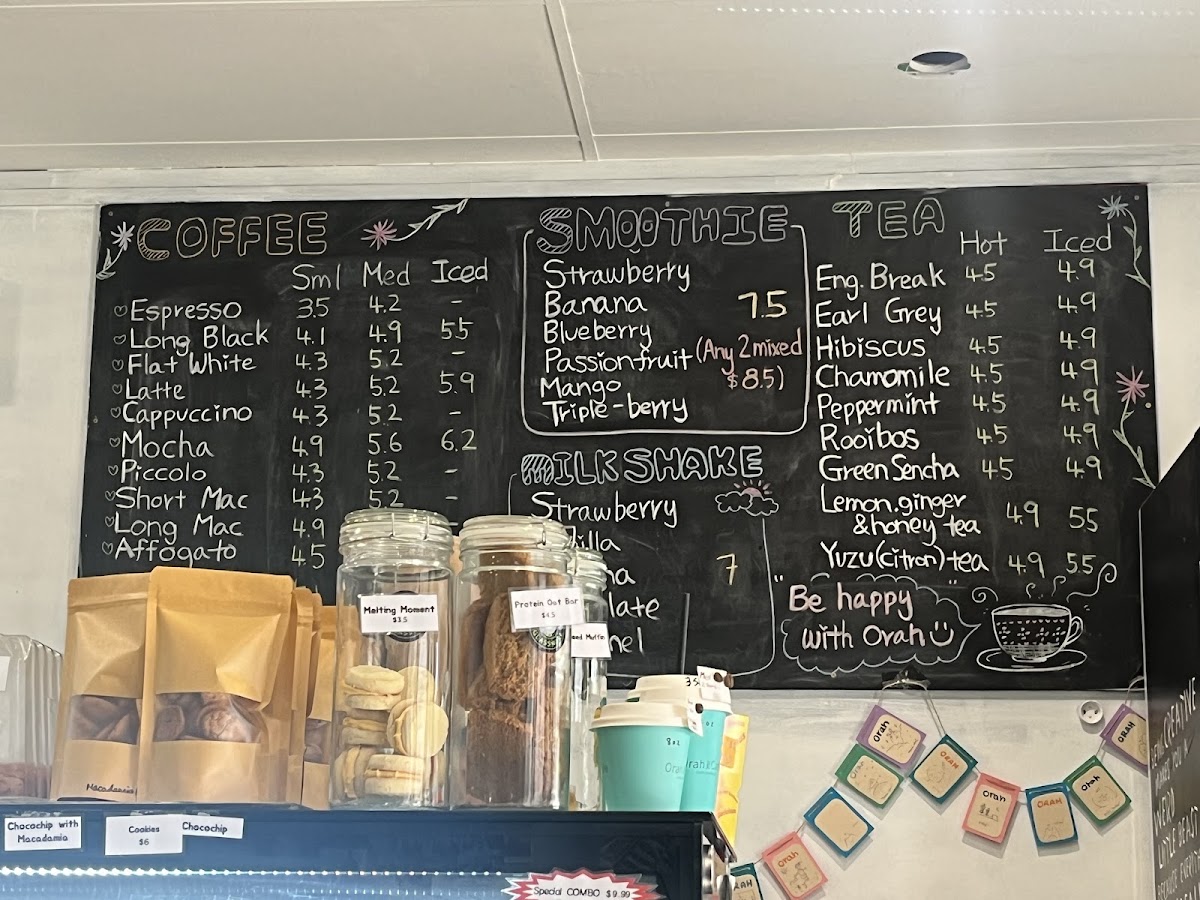 COFFEE
Sml Med Iced
Espresso 3.5 4.2 -
Long Black 4.1 4.9 5.5
Flat White 4.3 5.2 -
Latte 4.3 5.2 5.9
Cappuccino 4.3 5.2 -
Mocha 4.9 5.6 6.2
Piccolo 4.3 5.2 -
Short Mac 4.3 5.2 -
Long Mac 4.9
Affogato 4.5
SMOOTHIE
Strawberry
Banana 7.5
Blueberry
Passionfruit (Any 2 mixed
Mango $8.5)
Triple-berry
MILKSHAKE
Strawberry
illa
na 7
late
mel
TEA
Hot Iced
Eng. Break 4.5 4.9
Earl Grey 4.5 4.9
Hibiscus 4.5 4.9
Chamomile 4.5 4.9
Peppermint 4.5 4.9
Rooibos 4.5 4.9
Green Sencha 4.5 4.9
Lemon.ginger
& honey tea 4.9 5.5
Yuzu(citron) tea 4.9 5.5
"Be happy
with Orah"
Melting Moment
$3.5
Protein Oat Bar
$4.5
eed Muffin
8oz
Macadamia
Chocochip with
Macadamia
Cookies
$6
Chocochip
Special COMBO $9.99
Orah
Orah
ORAH
Orah
ORAH
Orah
ORAH
Orah
CREATIVE
WEIRD